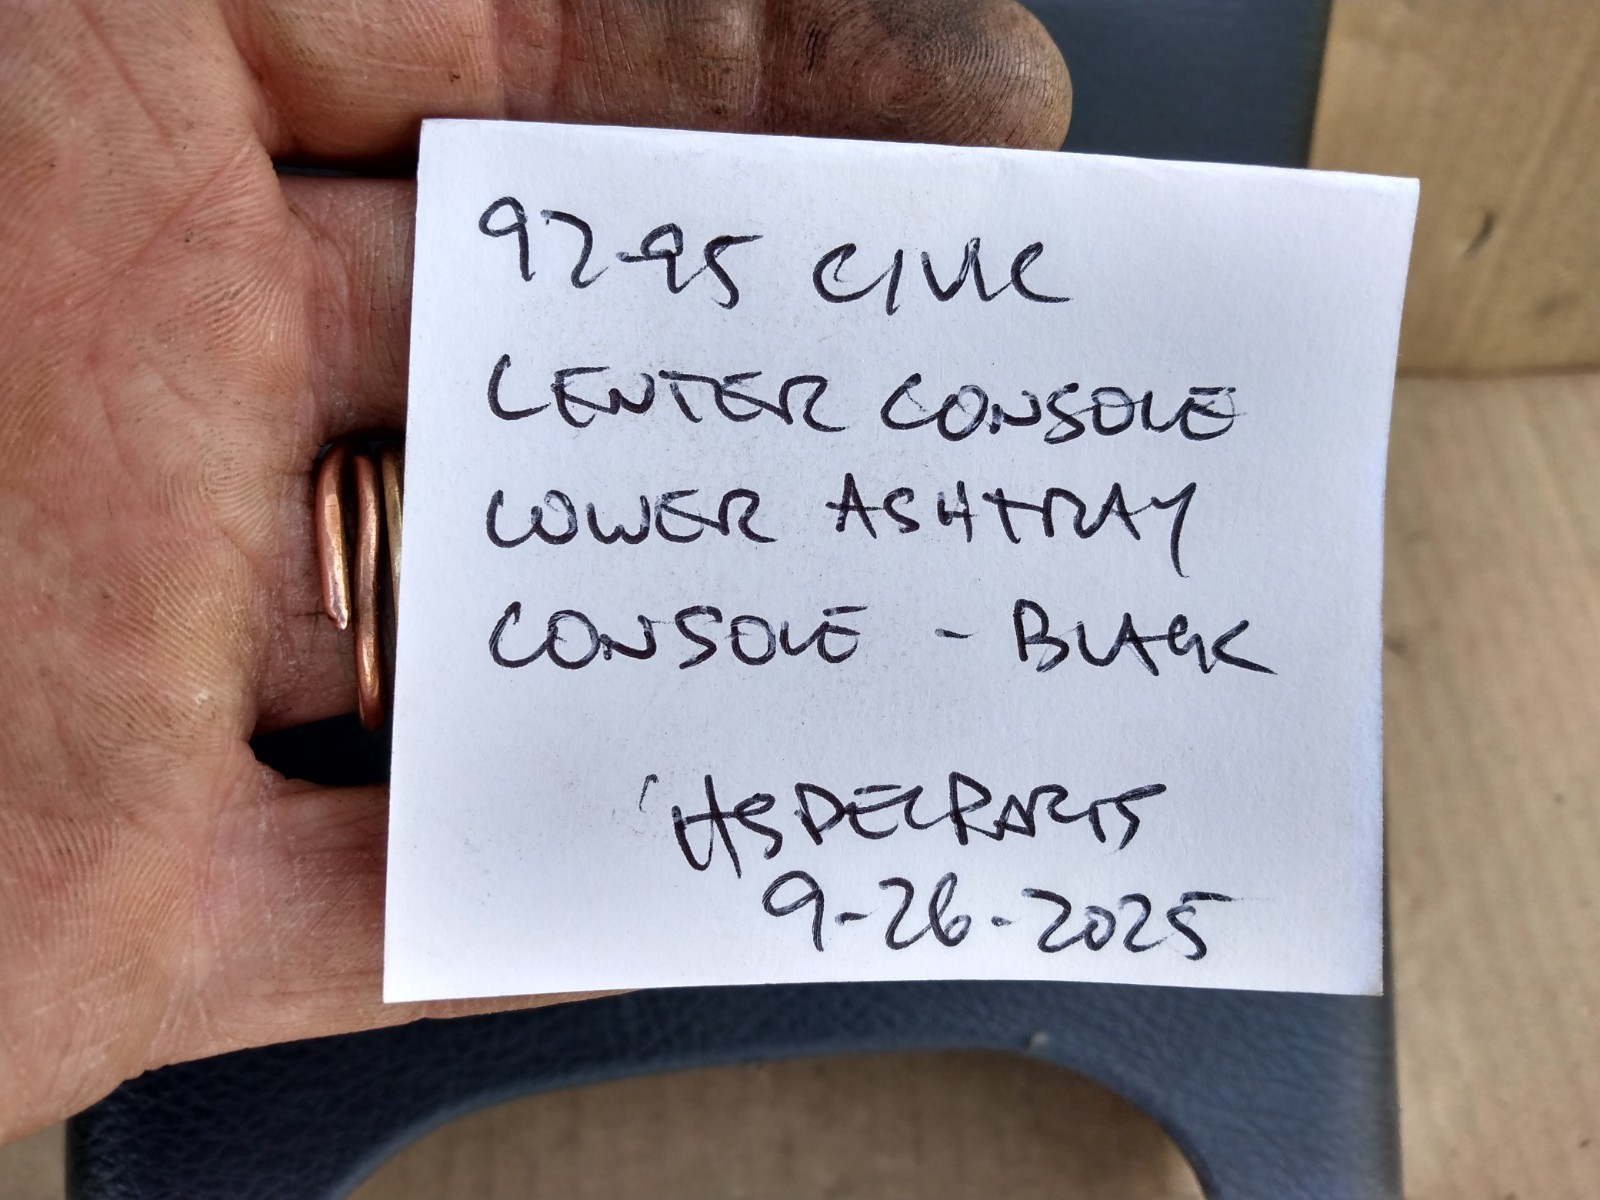 92-95 CIVIC
CENTER CONSOLE
LOWER ASHTRAY
CONSOLE - BLACK
HSDELPARTS
9-26-2025